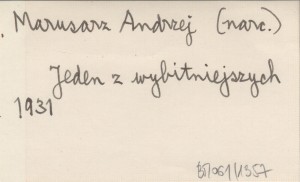 Marusarz Andrzej (narc.)
Jeden z wybitniejszych
1931